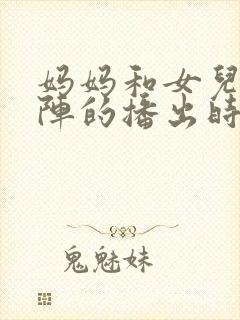 妈妈和女兒
陣的播出時
鬼魅妹